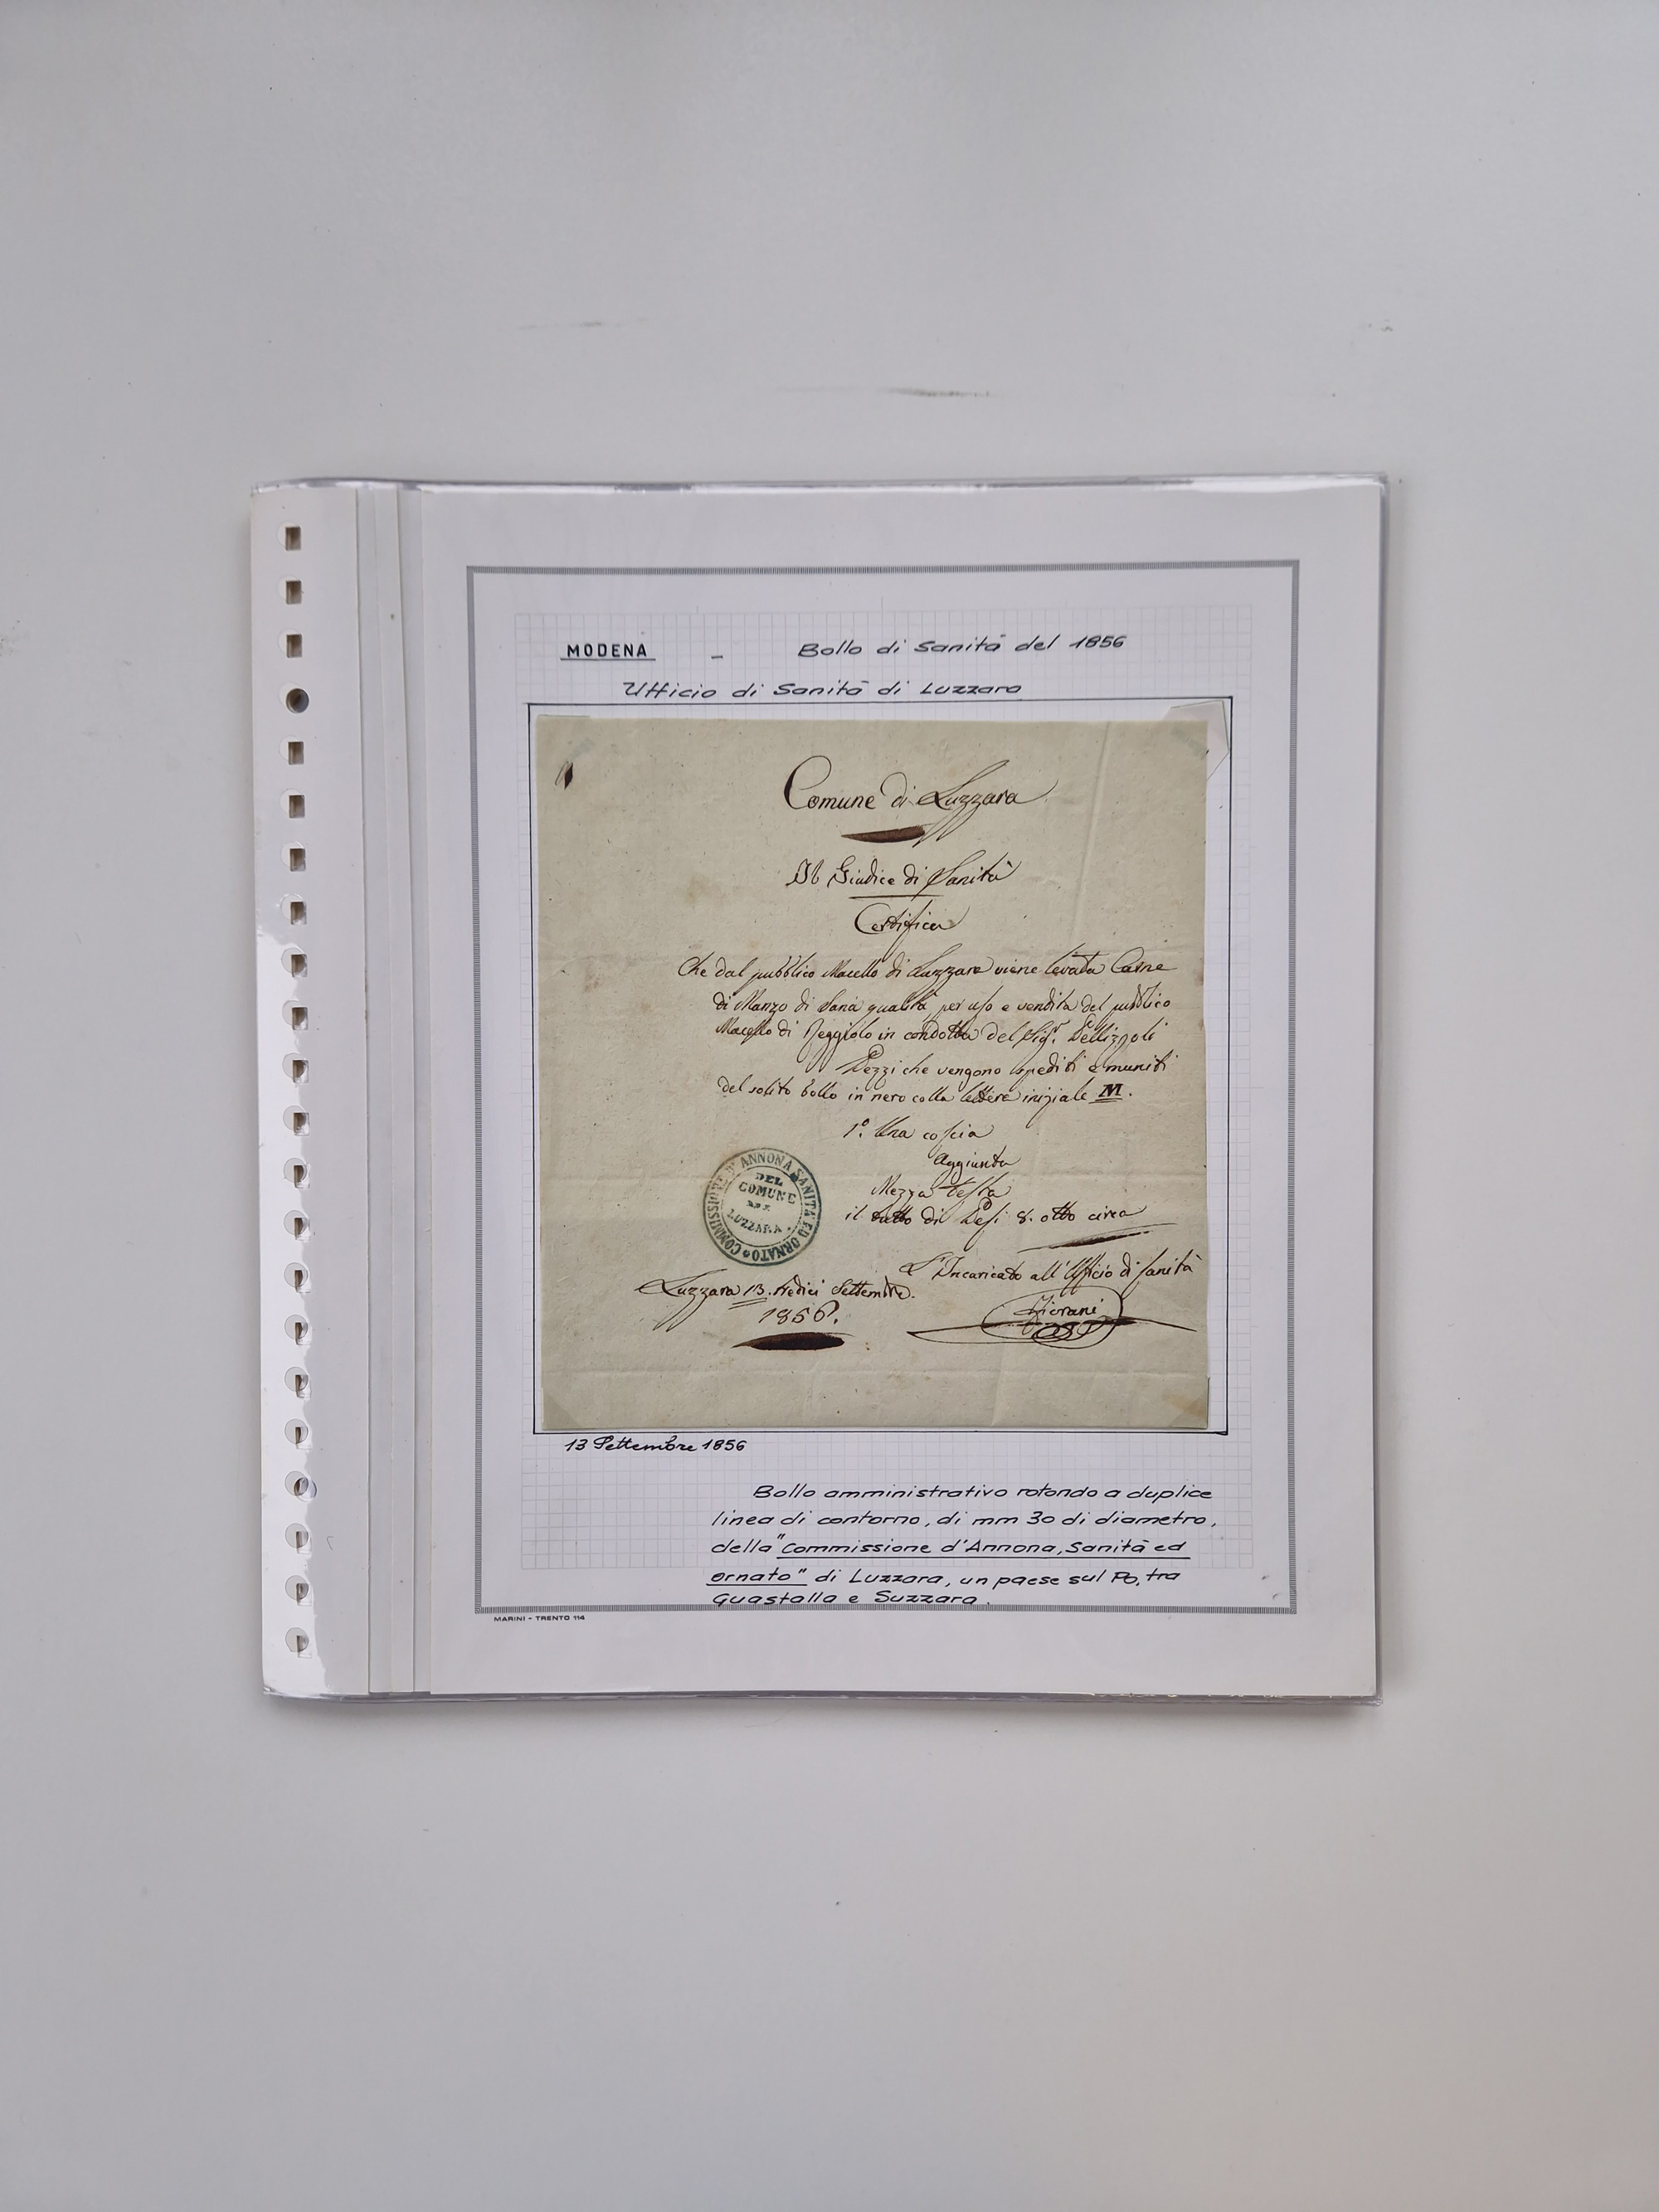 MODENA - Bollo di Sanità del 1856
Ufficio di Sanità di Luzzara
Comune di Luzzara
Il Giudice di Sanità
Certifica
Che dal pubblico Macello di Luzzara viene levata Carne
di Manzo di Sana qualità per uso e vendita del pubblico
Macello di Reggiolo in condotta del Sigr. Pellizzoli
Pezzi che vengono spediti e muniti
del solito bollo in nero colla lettera iniziale M.
1º. Una coscia
Aggiunta
Mezza testa
il tutto di Pesi 8. otto circa
COMMISSIONE D'ANNONA SANITÀ ED ORNATO
DEL
COMUNE
DI
LUZZARA
L'Incaricato all'Ufficio di Sanità
Luzzara 13. tredici Settembre.
1856.
Fiorani
13 Settembre 1856
Bollo amministrativo rotondo a duplice
linea di contorno, di mm 30 di diametro,
della "Commissione d'Annona, Sanità ed
ornato" di Luzzara, un paese sul Po, tra
Guastalla e Suzzara.
MARINI - TRENTO 114